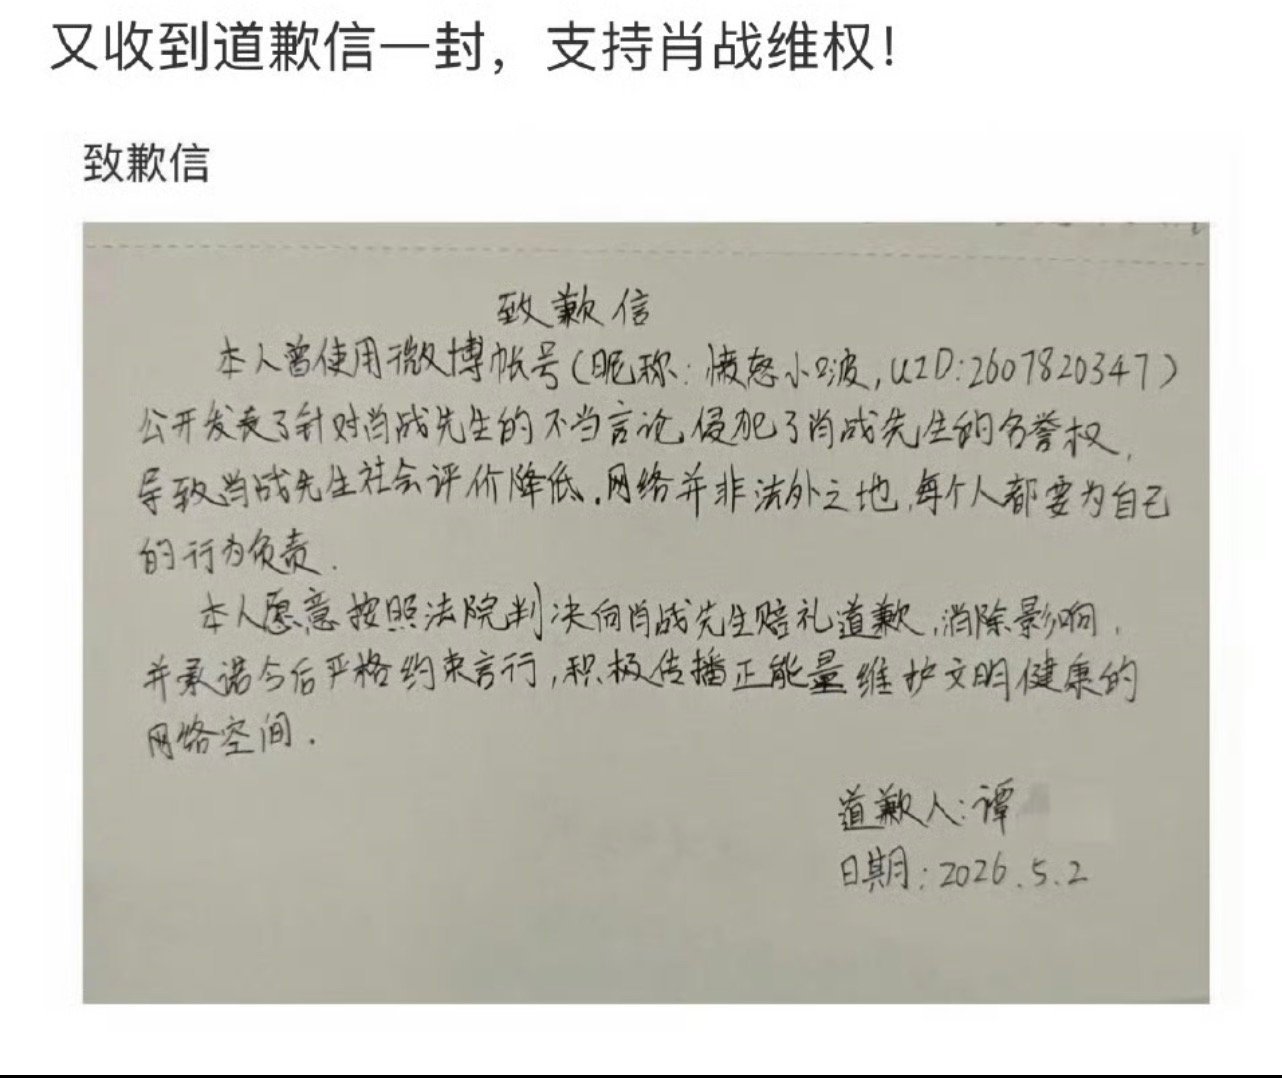 又收到道歉信一封，支持肖战维权！
致歉信
致歉信
本人曾使用微博帐号(昵称：愤怒小口波,UID:2607820347)
公开发表了针对肖战先生的不当言论,侵犯了肖战先生的名誉权,
导致肖战先生社会评价降低.网络并非法外之地,每个人都要为自己
的行为负责.
本人愿意按照法院判决向肖战先生赔礼道歉,消除影响,
并承诺今后严格约束言行,积极传播正能量维护文明健康的
网络空间.
道歉人:谭
日期:2026.5.2